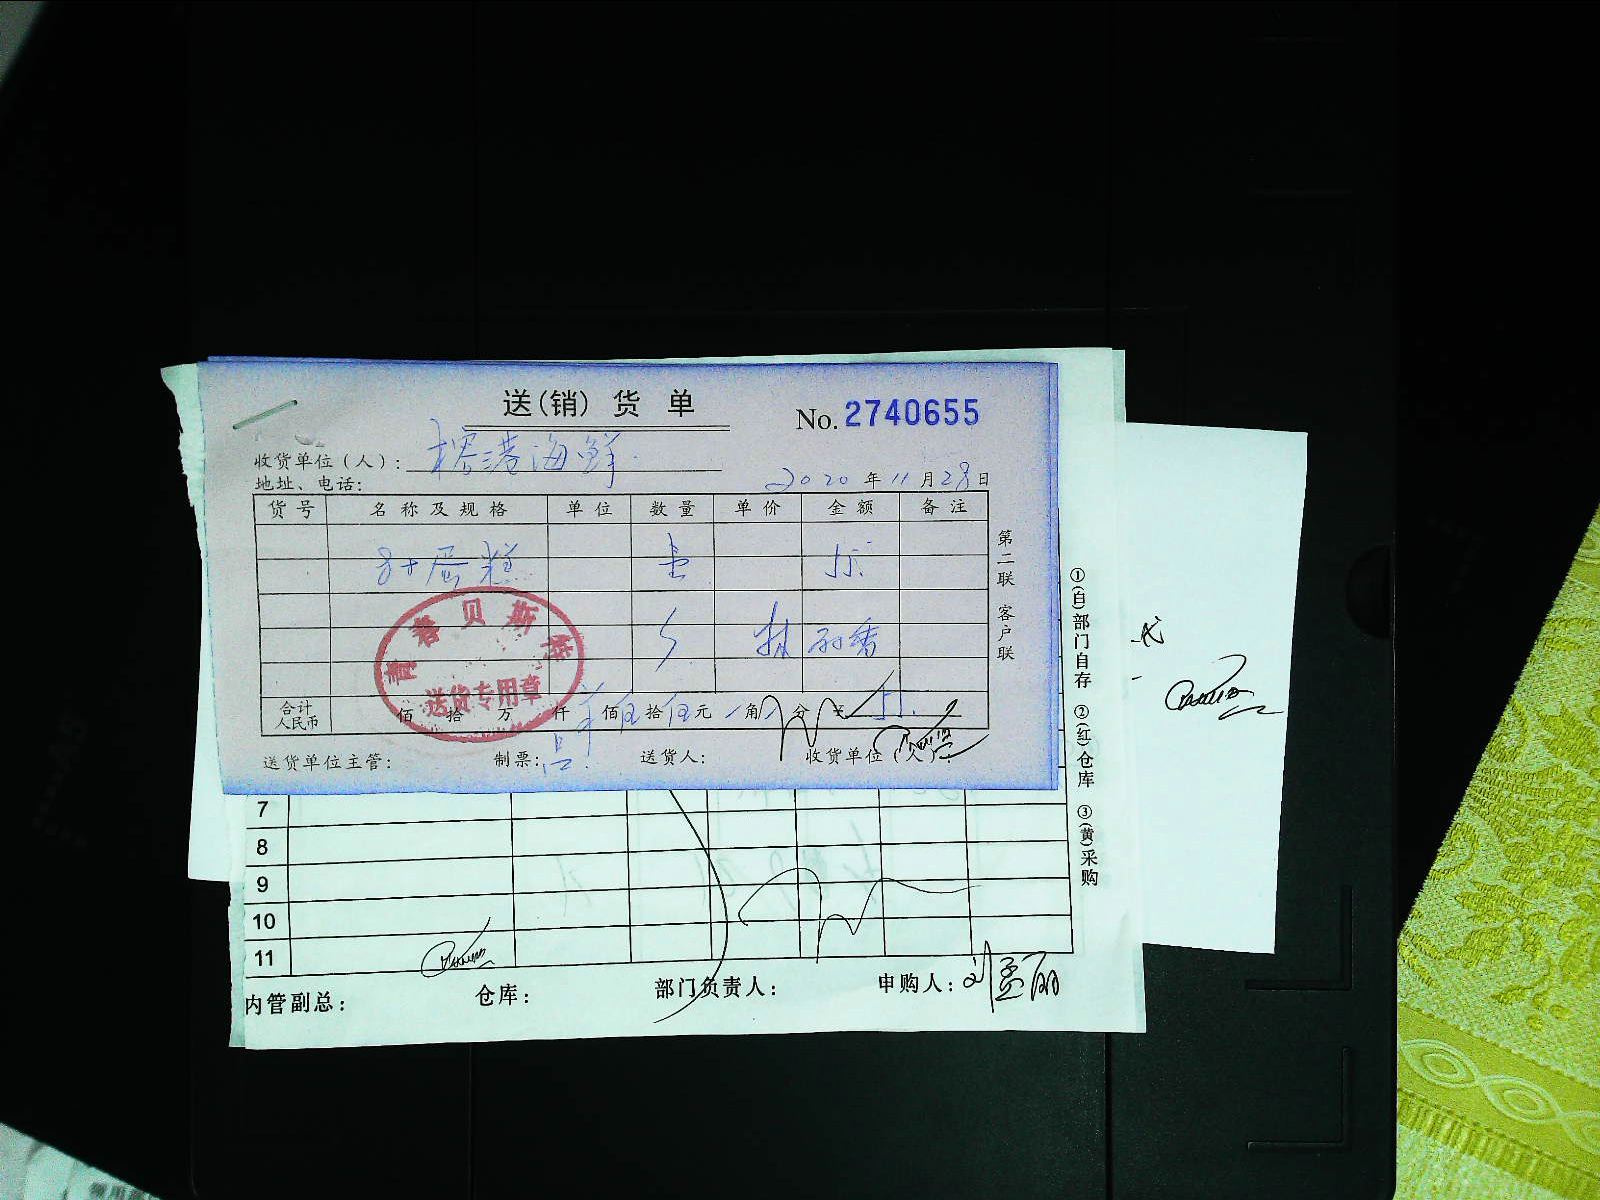 送(销) 货 单
No. 2740655
收货单位(人): 榕港海鲜
地址、电话:
2020 年 11 月 28 日
货号 名称及规格 单位 数量 单价 金额 备注
8寸蛋糕 壹 55.
青春贝斯特
送货专用章
合计人民币 佰 拾 万 仟 佰 伍 拾 伍 元 角 分 ¥ 55.
送货单位主管: 制票: 吕 送货人: 收货单位(人):
第二联 客户联
7
8
9
10
11
内管副总: 仓库: 部门负责人: 申购人: 刘孟丽
①(白)部门自存 ②(红)仓库 ③(黄)采购